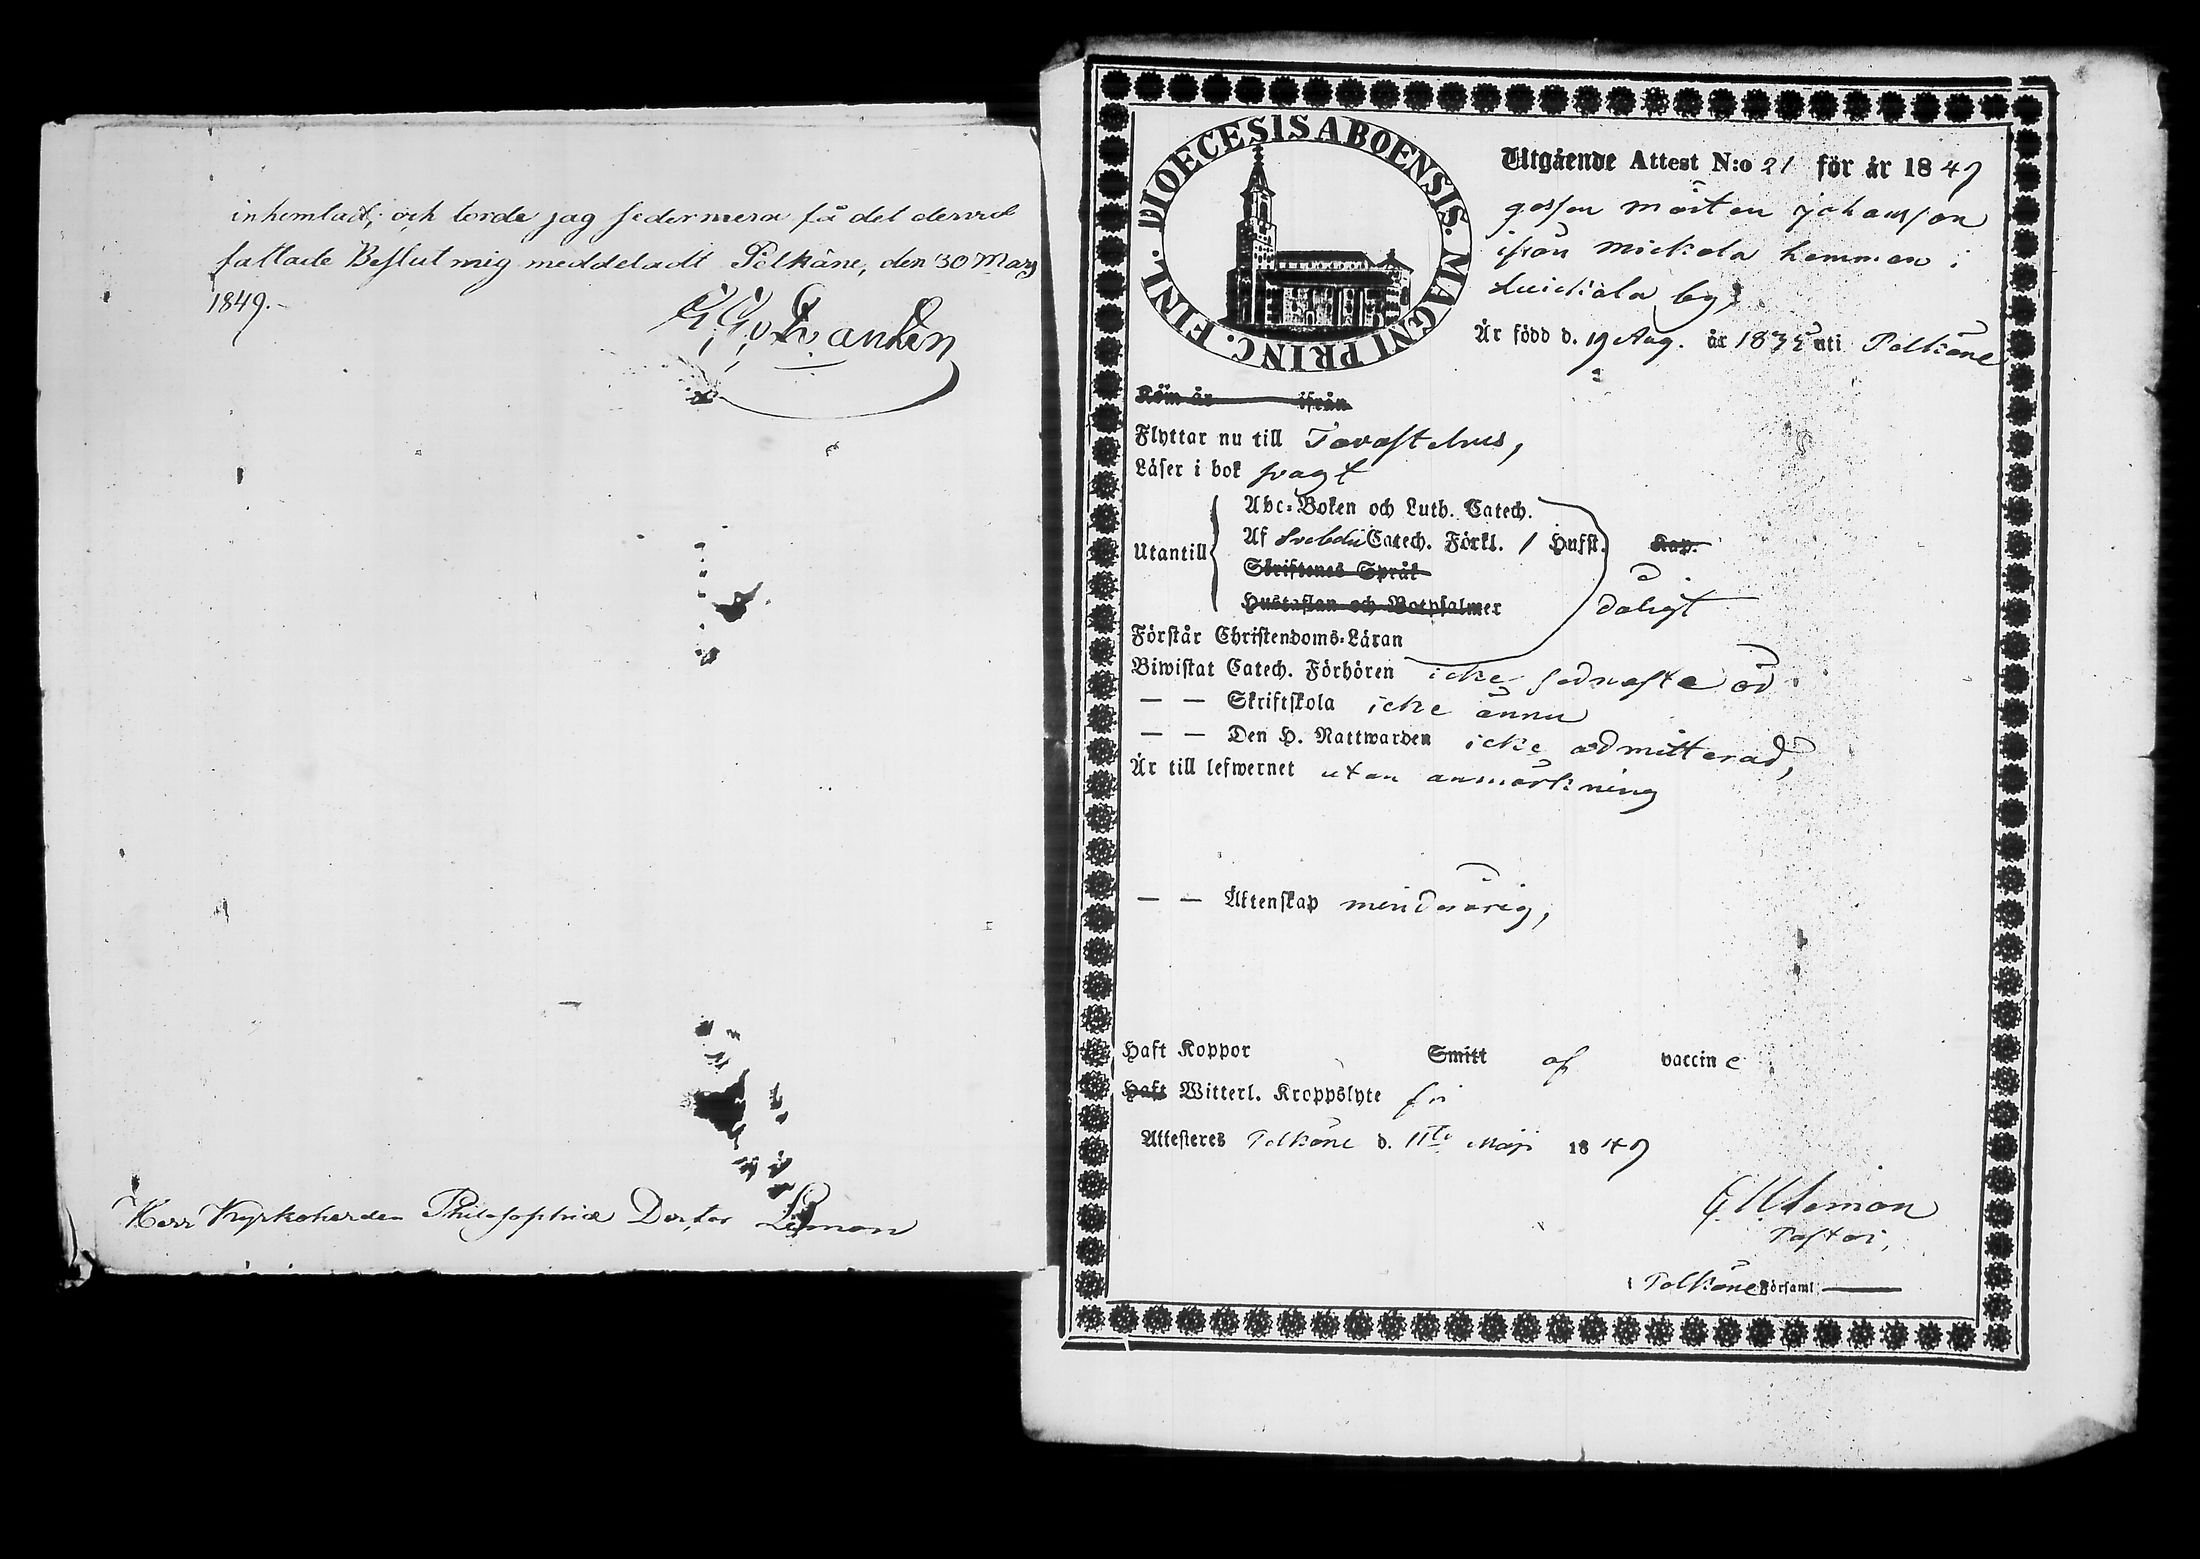 inhemtadt, och torde jag sedermera få det dervid
fattade Beslut mig meddeladt Pelkäne, den 30 Mars
1849.-
Herr Kyrkoherden Philosophiæ Doctor Leman
DIOECESIS ABOENSIS. MAGNI PRINC. FINL.
Utgående Attest N:o 21 för år 1849
gossen Mårten Johansson
ifrån Mickola hemman i
Luickiala by,
Är född d. 19 Aug. år 1835 uti Pelkäne
Köm år ifrån
Flyttar nu till Tavastehus,
Läser i bok svagt
Utantill
Abc-Boken och Luth. Catech.
Af Svebelii Catech. Förkl. 1 Hufst. Kap.
Skriftenes Språk
Hustaflan och Botpsalmer
dåligt
Förstår Christendoms-Läran
Biwistat Catech. Förhören icke sednaste år
— — Skriftskola icke ännu
— — Den H. Nattwarden icke admitterad,
Är till lefwernet utan anmärkning
— — Äktenskap minderårig,
Haft Koppor Smitt af vaccine
Haft Witterl. Kroppslyte fri
Attesteres Pelkäne d. 11te Maji 1849
Leman
Pastor,
i Pelkäne Församl.